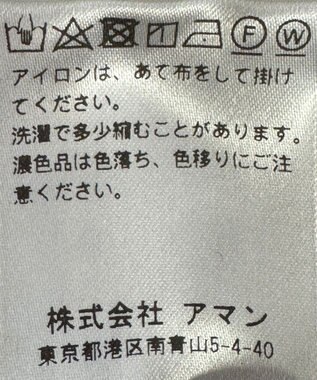 F W
アイロンは、あて布をして掛け
てください。
洗濯で多少縮むことがあります。
濃色品は色落ち、色移りにご注
意ください。
株式会社 アマン
東京都港区南青山5-4-40